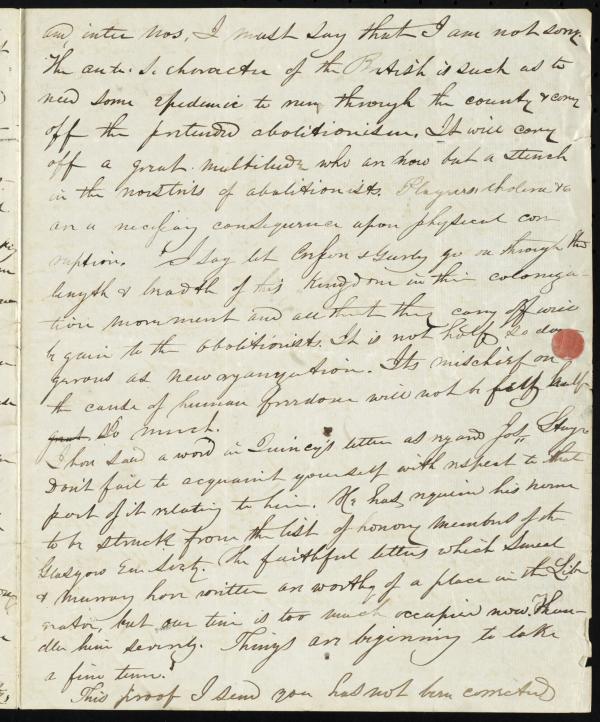 and, inter nos, I must say that I am not sorry.
The anti. S. character of the British is such as to
need some epidemic to run through the county & carry
off the pretended abolitionism. It will carry
off a great multitude who are now but a stench
in the nostrils of abolitionists. Plagues, cholera &c
are a necessary consequence upon physical cor-
ruption. I say let & Gurley go on through the
length & breadth of this Kingdom in their coloniza-
tion movement and all that they carry off will
be gain to the abolitionists. It is not half so dan-
gerous as new organization. Its mischief on
the cause of human freedom will not be half
great so much.
I have said a word in Quincy's letter as regard Jos. Sturge
Don't fail to acquaint yourself with respect to that
part of it relating to him. He has required his name
to be struck from the list of honory members of the
Glasgow Em Soc'ty. The faithful letters which Smeal
& Murray have written are worthy of a place in the Lib-
erator, but our time is too much occupied now. Thun-
der him severely. Things are beginning to take
a fine turn."
This proof I send you has not been corrected